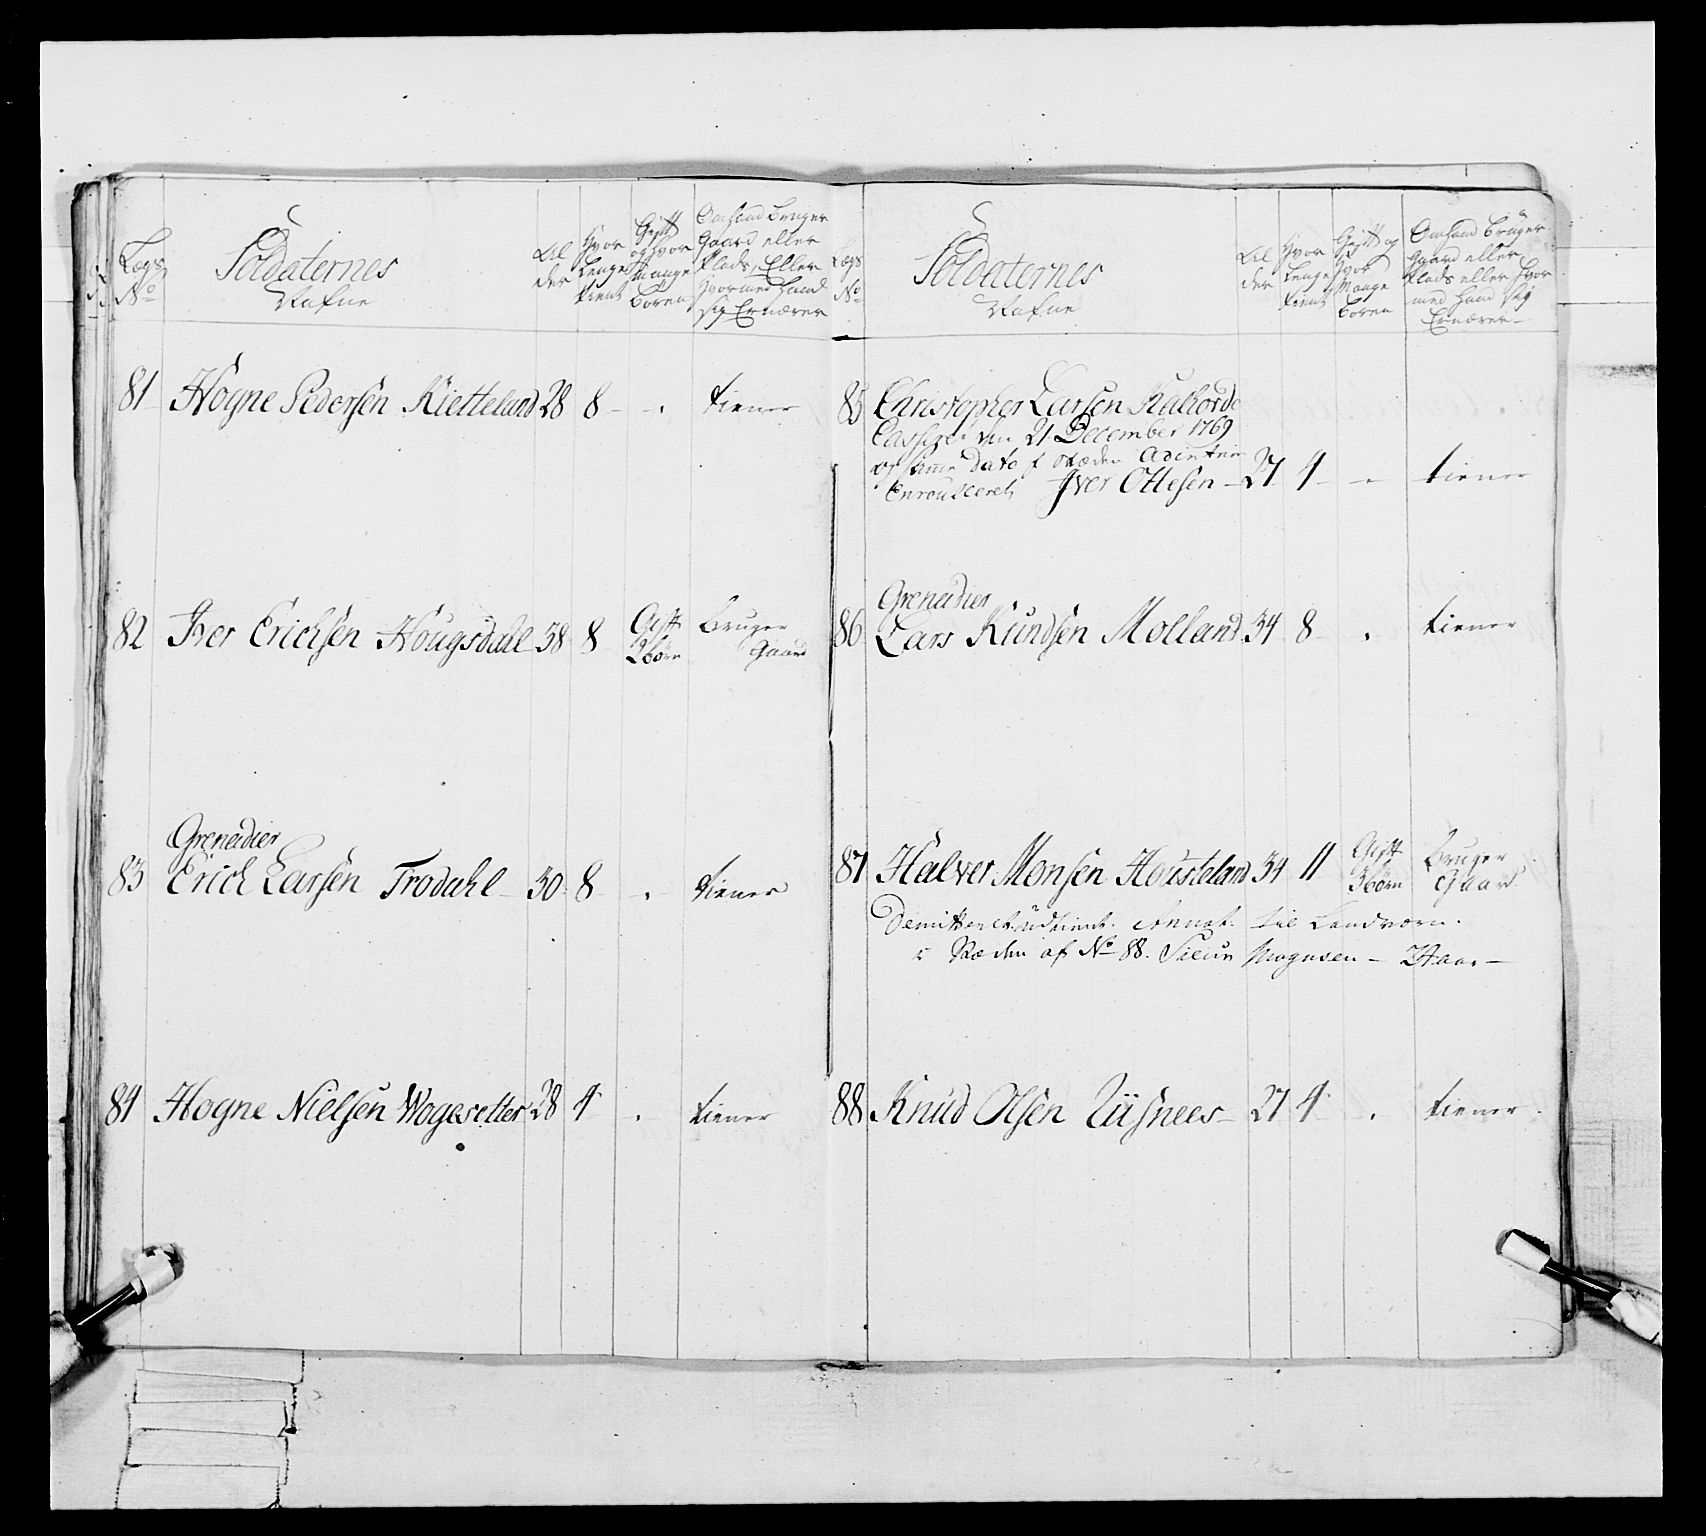 Lægs
No
Soldaternes
Nafne
Al
der
Hvor
Lenge
tient
Gift
og Hvor
mange
Børen
Om hand bruger
Gaard eller
Plads, Eller
Hvormed hand
sig Ernærer
81 Hogne Pedersen Kietteland 28 8 - . tiener
82 Iver Erichsen Hougsdahl 38 8 Gift 2 børn Bruger Gaard
Grenadier
83 Erich Larsen Trodahl 30 8 . tiener
84 Hogne Nielsen Wogesetter 28 4 . tiener
Lægs
No
Soldaternes
Nafne
Al
der
Hvor
Lenge
tient
Gift og
Hvor
Mange
børen
Om hand Bruger
Gaard eller
Plads eller Hvor
med hand sig
Ernærer
85 Christopher Larsen
den 21 December 1769
dato
Iver Ottesen - 27 4 - . tiener
Grenadier
86 Lars Knudsen Molland 34 8 . tiener
87 Halver Monsen Housteland 34 11 Gift 3 børn Bruger Gaard
Demitteret udtient. til Landværn.
af No 88. Mognsen - Aar -
88 Knud Olsen Riisnees - 27 4 . tiener